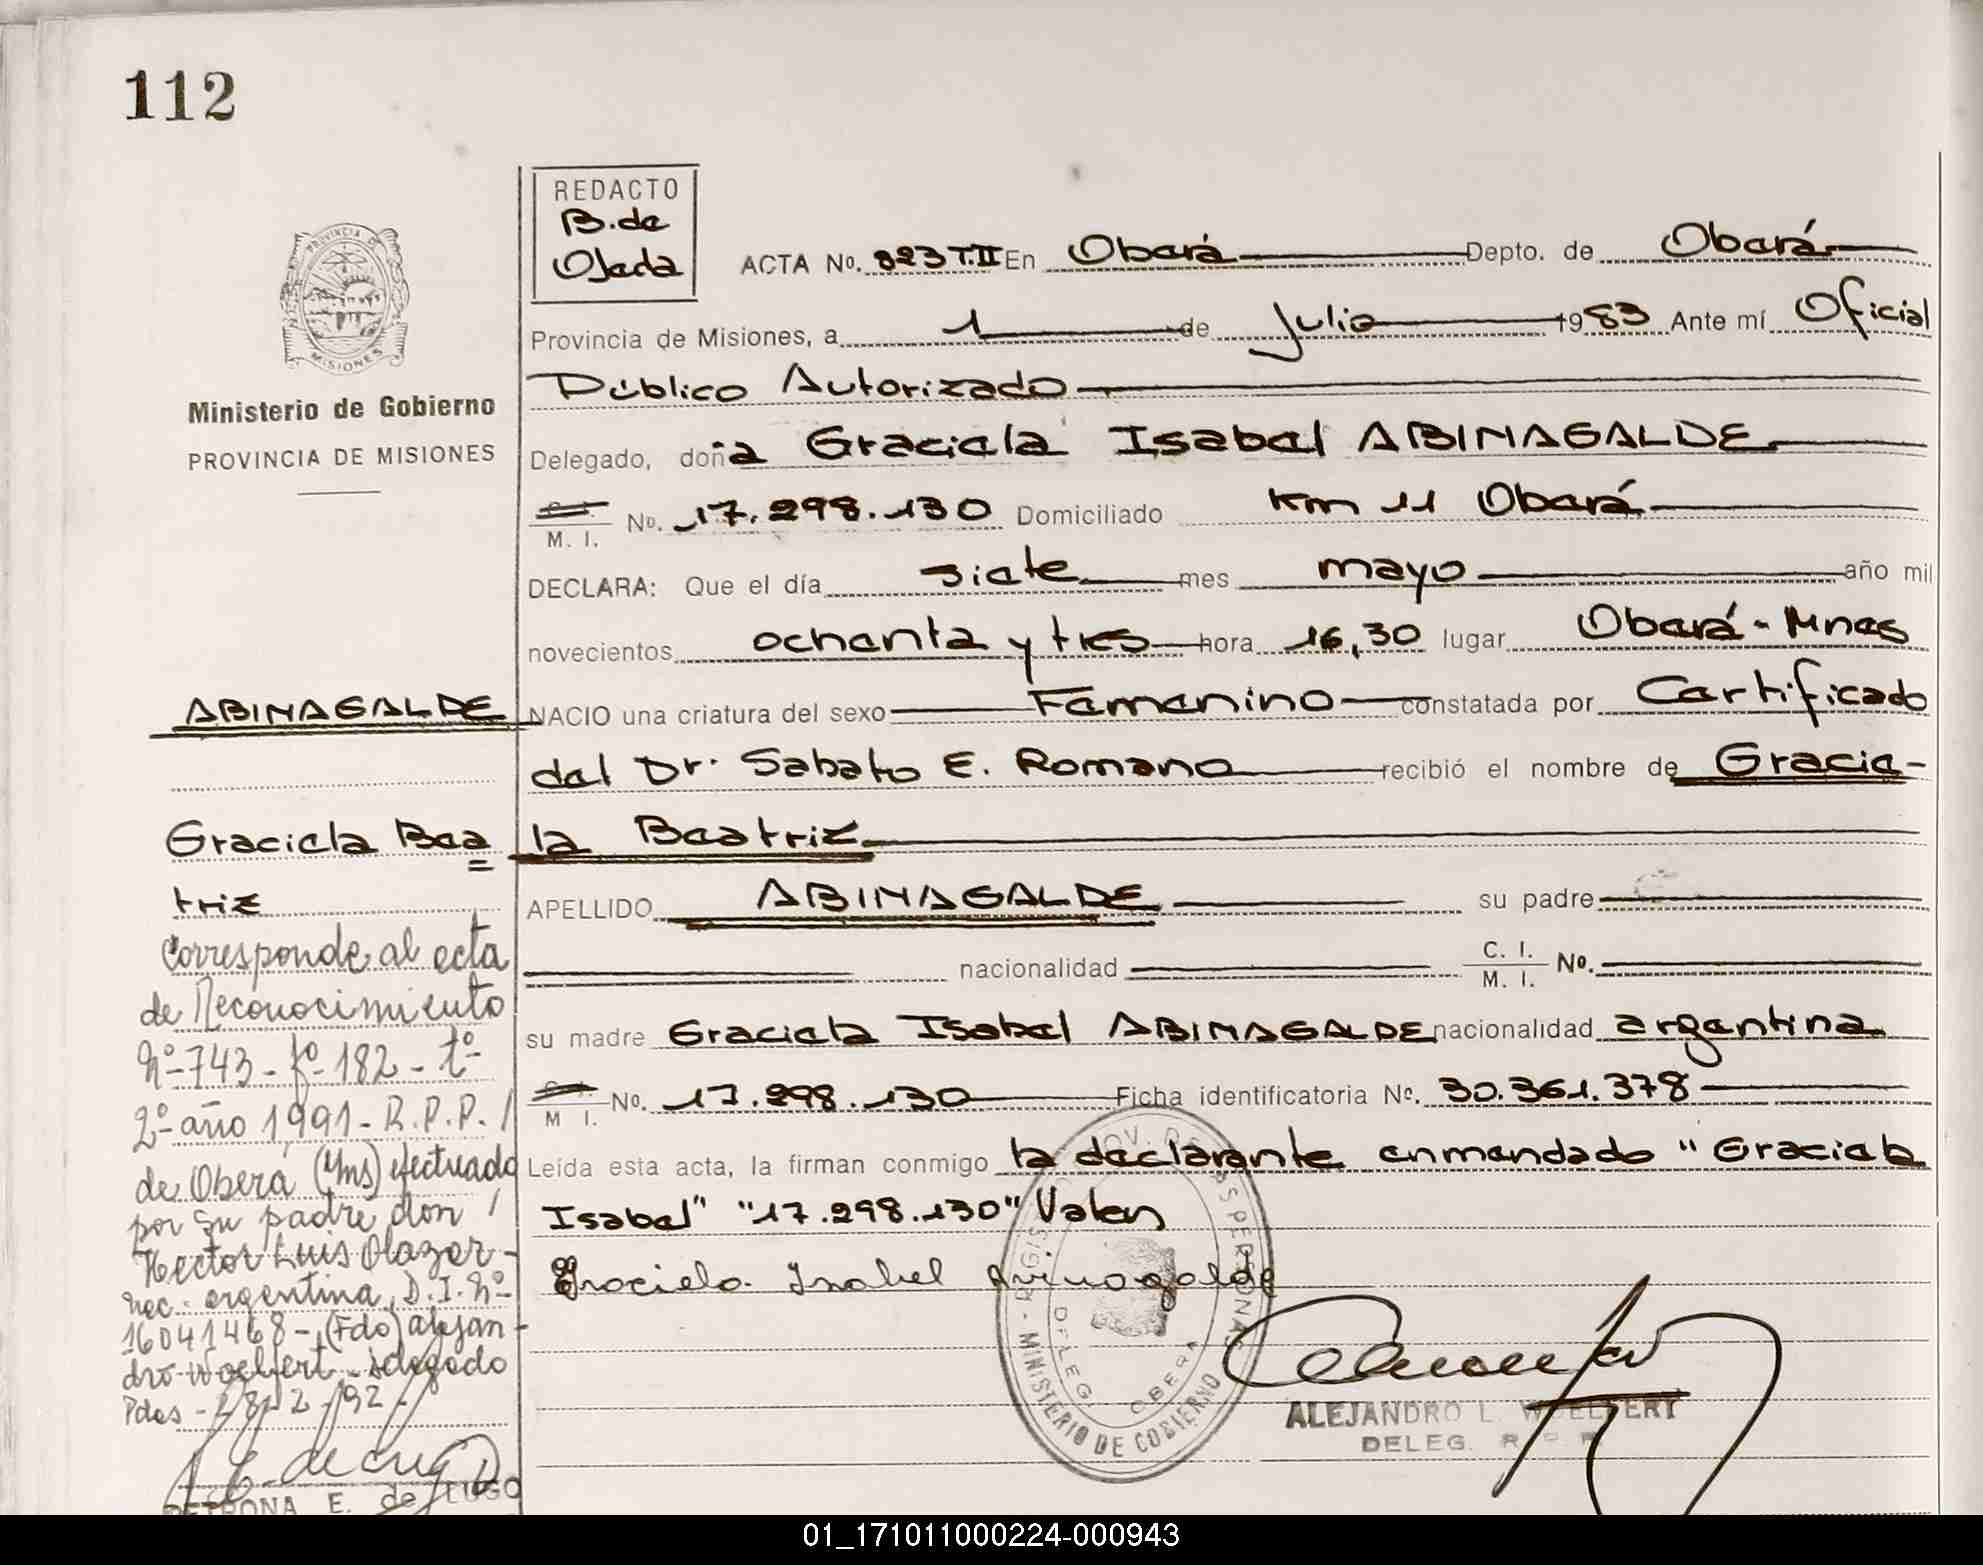 112
REDACTO
B. de
Ojeda
PROVINCIA DE
MISIONES
Ministerio de Gobierno
PROVINCIA DE MISIONES
ACTA No. 823 T.II En Oberá Depto. de Oberá
Provincia de Misiones, a 1 de Julio 1983 Ante mí Oficial
Público Autorizado
Delegado, doña Graciela Isabel ABINAGALDE
M. I. No. 17.298.130 Domiciliado Km 11 Oberá
DECLARA: Que el día siete mes mayo año mil
novecientos ochenta y tres hora 16,30 lugar Oberá - Mnes
NACIO una criatura del sexo Femenino constatada por Certificado
del Dr. Sabato E. Romano recibió el nombre de Gracie-
la Beatriz
APELLIDO ABINAGALDE su padre
nacionalidad C. I. M. I. No.
su madre Graciela Isabel ABINAGALDE nacionalidad argentina
M I. No. 17.298.130 Ficha identificatoria No. 30.361.378
Leída esta acta, la firman conmigo la declarante enmendado "Graciela
Isabel" "17.298.130" Valen
Graciela Isabel
ALEJANDRO L. WOELFERT
DELEG. R P P
MINISTERIO DE GOBIERNO
DELEG. OBERA
ABINAGALDE
Graciela Bea=
triz
Corresponde al acta
de Reconocimiento
Nº 743 - fº 182 - tº
2º año 1991 - R.P.P. /
de Oberá (Mns) efectuado
por su padre don
Hector Luis Olazar -
nac. argentina, D.I. Nº
16041468 - (Fdo) alejan
dro Woelfert - delegado
Pdas - 28-2-92
PETRONA E. de LUGO
01_171011000224-000943